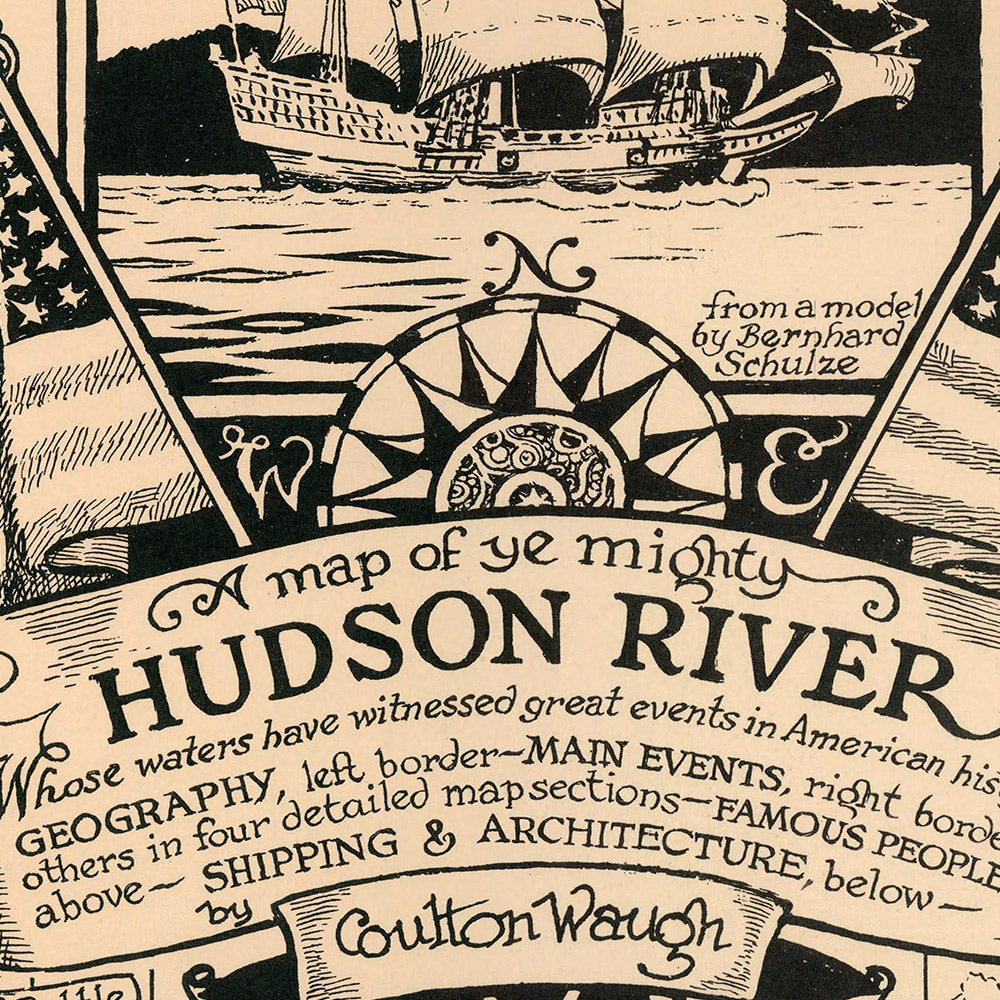 N
from a model
by Bernhard
Schulze
W
E
A map of ye mighty
HUDSON RIVER
Whose waters have witnessed great events in American his
GEOGRAPHY, left border—MAIN EVENTS, right borde
others in four detailed map sections—FAMOUS PEOPLE
above— SHIPPING & ARCHITECTURE, below—
by
Coulton Waugh